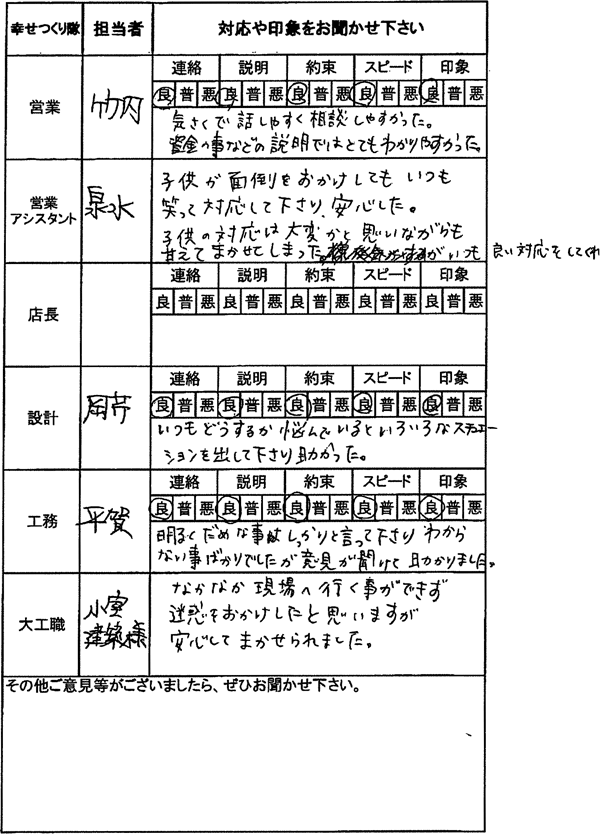 幸せつくり隊 担当者 対応や印象をお聞かせ下さい
連絡 説明 約束 スピード 印象
営業 竹内 良 普 悪 良 普 悪 良 普 悪 良 普 悪 良 普 悪
気さくで話しやすく相談しやすかった。
資金の事などの説明ではとてもわかりやすかった。
営業アシスタント 泉水
子供が面倒をおかけしてもいつも
笑って対応して下さり、安心した。
子供の対応は大変かと思いながらも
甘えてまかせてしまった がいつも良い対応をしてくれ
連絡 説明 約束 スピード 印象
店長 良 普 悪 良 普 悪 良 普 悪 良 普 悪 良 普 悪
連絡 説明 約束 スピード 印象
設計 良 普 悪 良 普 悪 良 普 悪 良 普 悪 良 普 悪
いつもどうするか悩んでいるといろいろなスチュエー
ションを出して下さり助かった。
連絡 説明 約束 スピード 印象
工務 平賀 良 普 悪 良 普 悪 良 普 悪 良 普 悪 良 普 悪
明るくだめな事はしっかりと言って下さりわから
ない事ばかりでしたが意見が聞けて助かりました。
大工職 小室建築様
なかなか現場へ行く事ができず
迷惑をおかけしたと思いますが
安心してまかせられました。
その他ご意見等がございましたら、ぜひお聞かせ下さい。